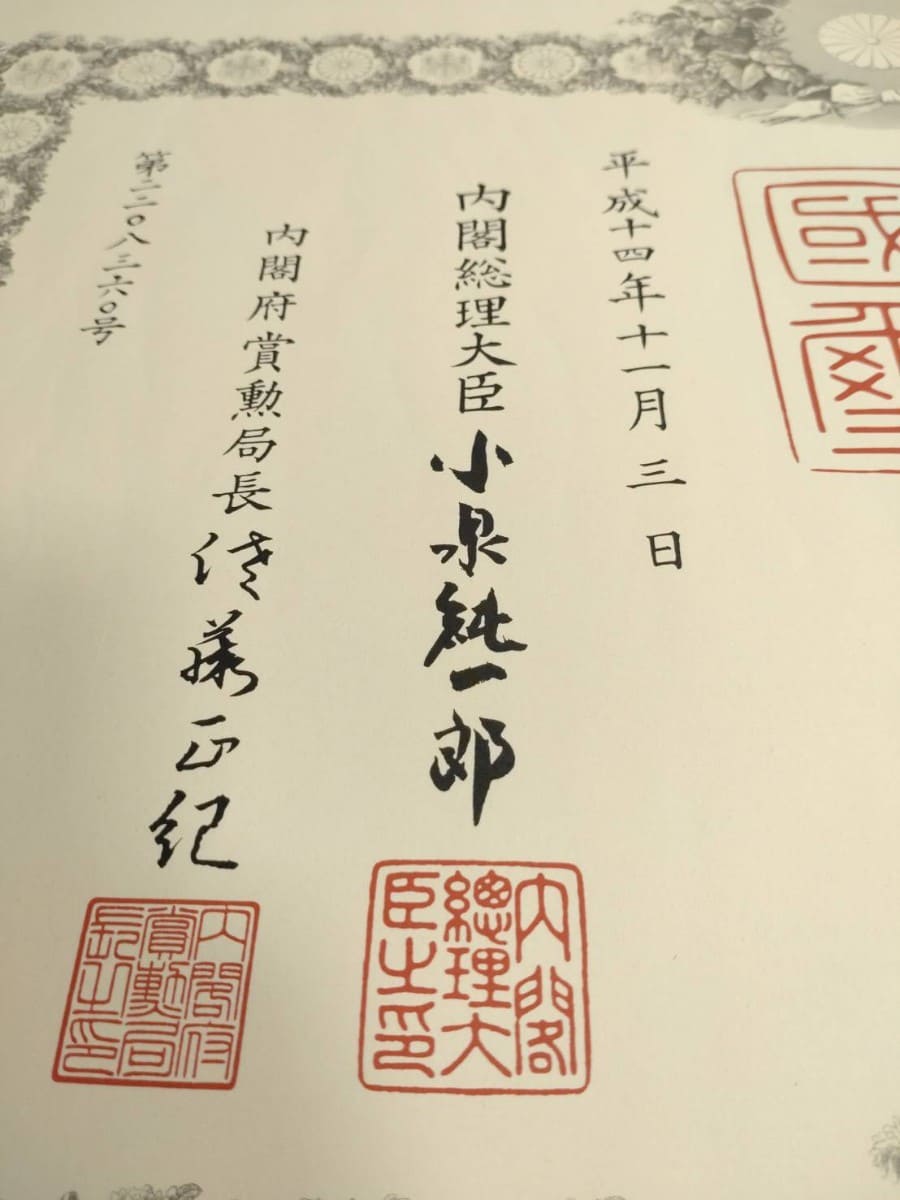 國璽
平成十四年十一月三日
内閣総理大臣 小泉純一郎
内閣
總理大
臣之印
内閣府賞勲局長 佐藤正紀
内閣府
賞勲局
長之印
第二二〇八三六〇号